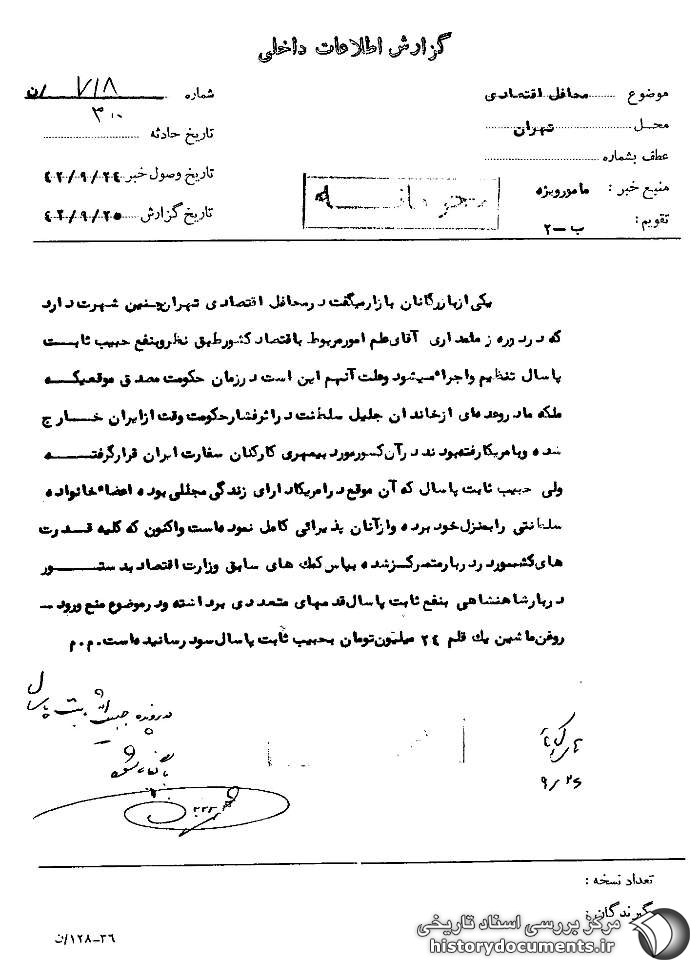 گزارش اطلاعات داخلی
موضوع محافل اقتصادی
شماره ۷۱۸ /ن
۳۰۰
محل تهران
تاریخ حادثه
عطف بشماره
تاریخ وصول خبر ۴۲/۹/۲۴
منبع خبر : مامورویژه
تاریخ گزارش ۴۲/۹/۲۵
تقویم: ب -۲
محرمانه
یکی ازبازرگانان بازارمیگفت درمحافل اقتصادی تهران چنین شهرت دارد
که دردوره زمامداری آقای علم امورمربوط باقتصادکشورطبق نظروبنفع حبیب ثابت
پاسال تنظیم واجراءمیشود وعلت آنهم این است درزمان حکومت مصدق موقعیکه
ملکه مادروعده ای ازخاندان جلیل سلطنت دراثرفشارحکومت وقت ازایران خارج
شده وبامریکارفته بودند درآن کشورمورد بیمهری کارکنان سفارت ایران قرارگرفته
ولی حبیب ثابت پاسال که آن موقع درامریکادارای زندگی مجللی بوده اعضاءخانواده
سلطنتی رابمنزل خود برده وازآنان پذیرائی کامل نموده است واکنون که کلیه قدرت
های کشوردر دربارمتمرکزشده بپاس کمک های سابق وزارت اقتصاد بدستور
دربارشاهنشاهی بنفع ثابت پاسال قدمهای متعددی برداشته ودرموضوع منع ورود -
روغن ماشین یک قلم ۲۴ میلیون تومان بحبیب ثابت پاسال سود رسانیده است. م.م
در پرونده حبیب اله ثابت پاسال
بایگانی شود
۹/۲۶
تعداد نسخه :
گیرندگان :
۳۶-۱۲۸/ن
مرکز بررسی اسناد تاریخی
historydocuments.ir